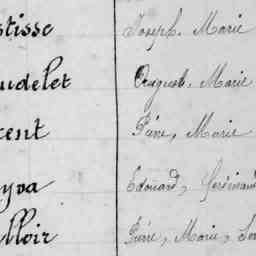 tisse Joseph, Marie
udelet August, Marie
cent Pierre, Marie
yva Edouard, Ferdinand
lloir Pierre, Marie,